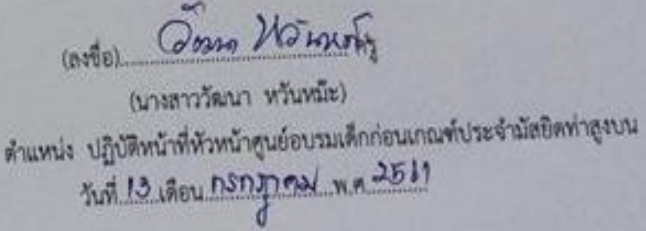 (ลงชื่อ) วัฒนา หวันหม๊ะ
(นางสาววัฒนา หวันหม๊ะ)
ตำแหน่ง ปฏิบัติหน้าที่หัวหน้าศูนย์อบรมเด็กก่อนเกณฑ์ประจำมัสยิดท่าสูงบน
วันที่ 13 เดือน กรกฎาคม พ.ศ. 2561